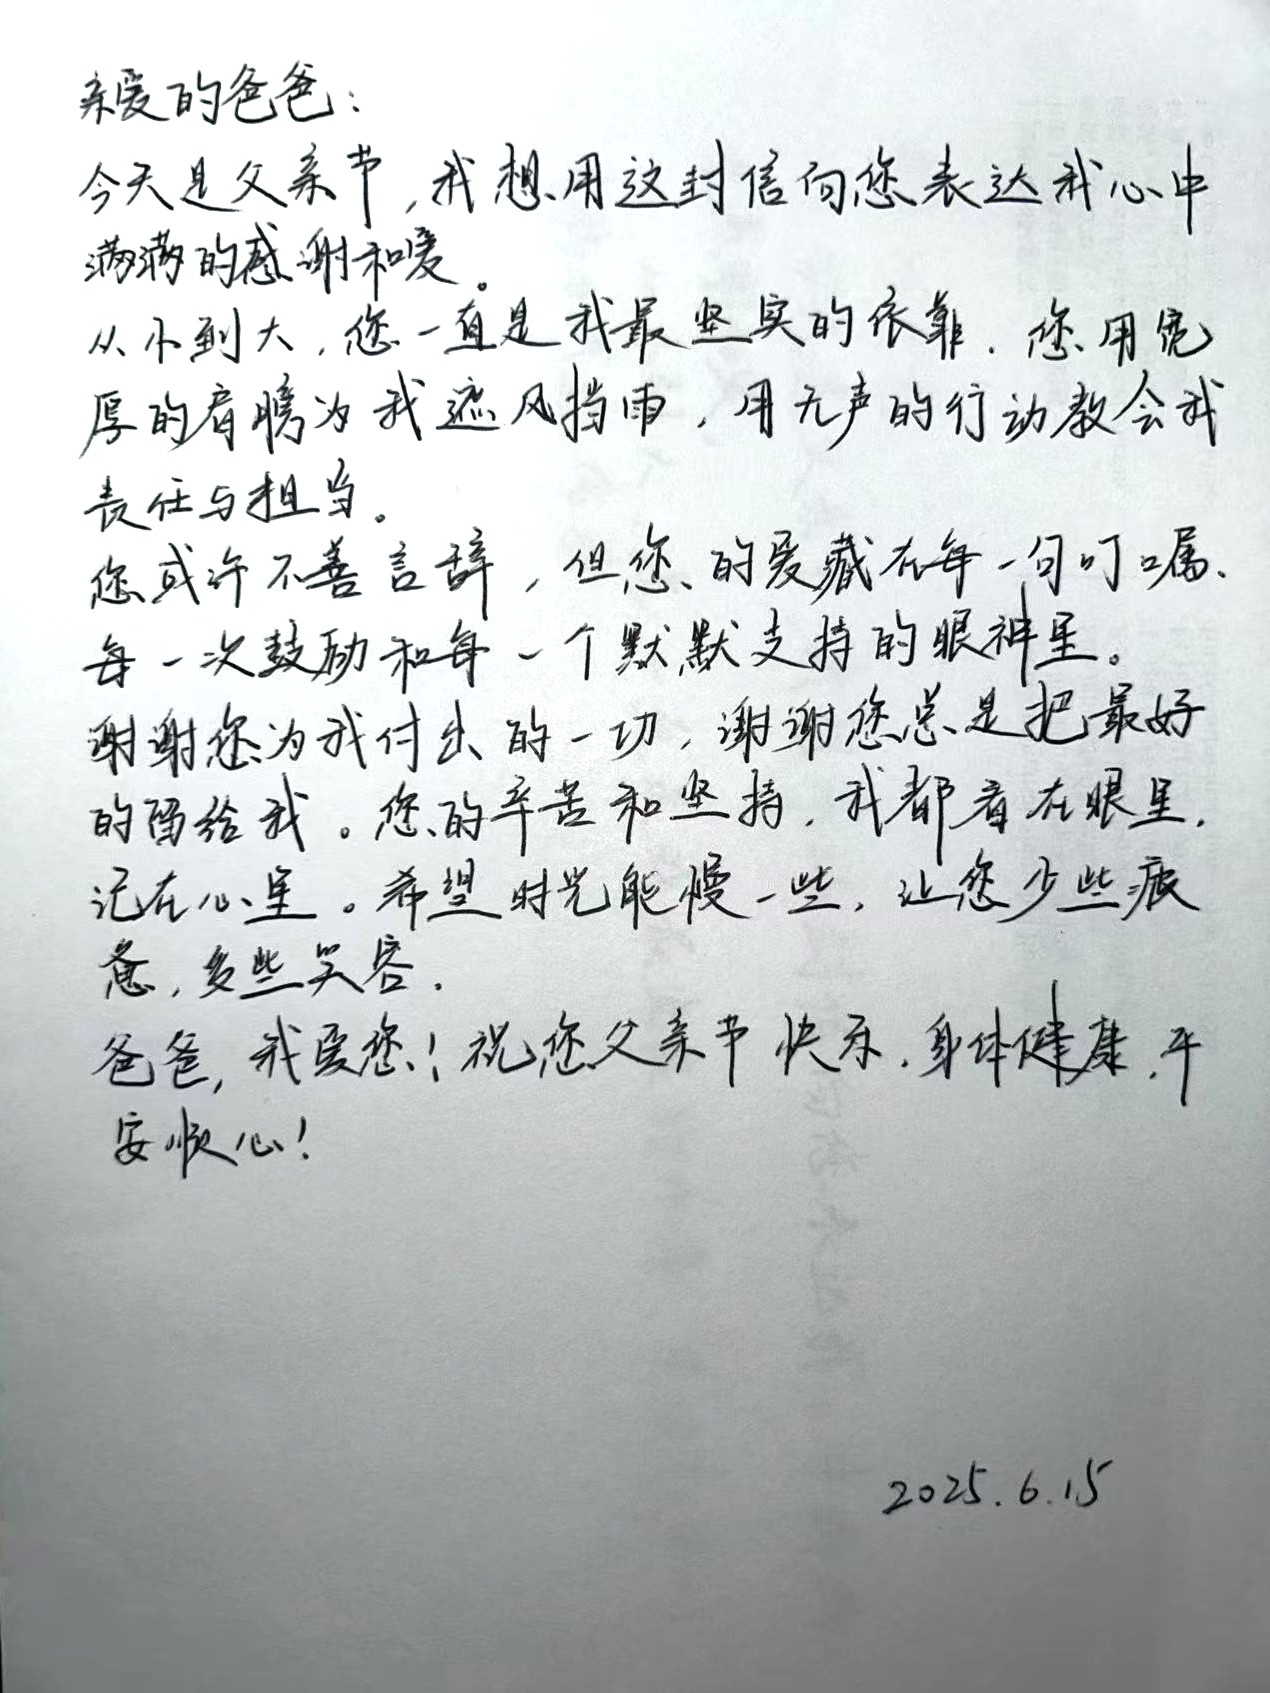 亲爱的爸爸：
今天是父亲节，我想用这封信向您表达我心中
满满的感谢和爱。
从小到大，您一直是我最坚实的依靠．您用宽
厚的肩膀为我遮风挡雨，用无声的行动教会我
责任与担当。
您或许不善言辞，但您的爱藏在每一句叮嘱、
每一次鼓励和每一个默默支持的眼神里。
谢谢您为我付出的一切，谢谢您总是把最好
的留给我。您的辛苦和坚持，我都看在眼里，
记在心里。希望时光能慢一些，让您少些疲
惫，多些笑容．
爸爸，我爱您！祝您父亲节快乐，身体健康，平
安顺心！
2025.6.15